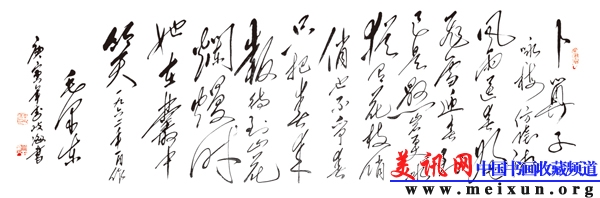 卜算子
咏梅
风雨送春归
飞雪迎春到
已是悬崖百丈冰
犹有花枝俏
俏也不争春
只把春来
报待到山花
爛熳时
她在叢中
笑 一九六二年
毛泽东
庚寅年
书
美讯网 中国书画收藏频道
www.meixun.org